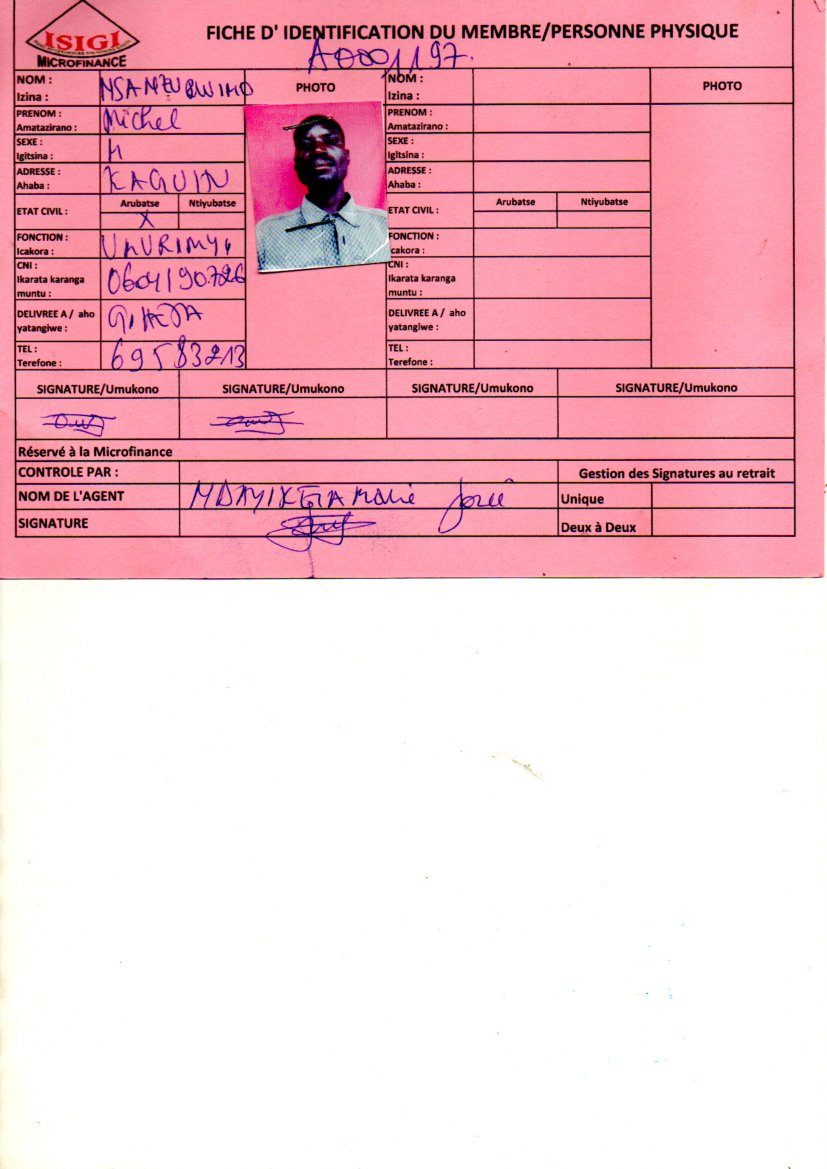 ISIGI
MICROFINANCE
FICHE D' IDENTIFICATION DU MEMBRE/PERSONNE PHYSIQUE
A0001197.
NOM :
Izina :
NSANZUBWIMO
PHOTO
PRENOM :
Amatazirano :
Michel
SEXE :
Igitsina :
M
ADRESSE :
Ahaba :
KAGUIN
ETAT CIVIL :
Arubatse Ntiyubatse
X
FONCTION :
Icakora :
UMURIMYI
CNI :
Ikarata karanga
muntu :
0604190.726
DELIVREE A / aho
yatangiwe :
GIHETA
TEL :
Terefone :
69583213
NOM :
Izina :
PHOTO
PRENOM :
Amatazirano :
SEXE :
Igitsina :
ADRESSE :
Ahaba :
ETAT CIVIL :
Arubatse Ntiyubatse
FONCTION :
cakora :
CNI :
Ikarata karanga
muntu :
DELIVREE A / aho
yatangiwe :
TEL :
Terefone :
SIGNATURE/Umukono SIGNATURE/Umukono SIGNATURE/Umukono SIGNATURE/Umukono
Réservé à la Microfinance
CONTROLE PAR :
Gestion des Signatures au retrait
NOM DE L'AGENT
NDAYIKEZA Marie José
Unique
SIGNATURE
Deux à Deux